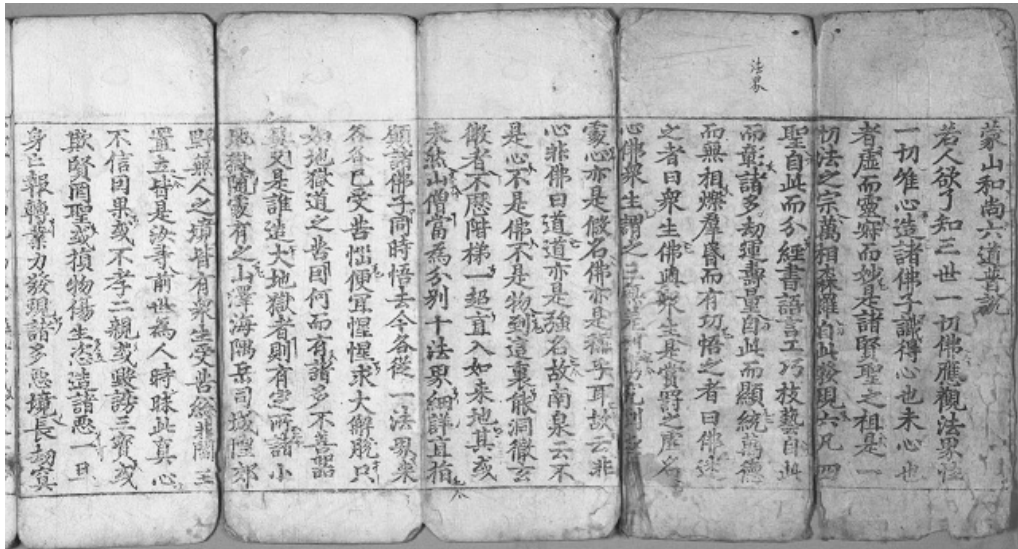 蒙山和尚六道普說
若人欲了知三世一切佛應觀法界性
一切唯心造諸佛子識得心也未心也
者虛而靈寂而妙是諸賢聖之祖是一
切法之宗萬相森羅自此發現六凡四
聖自此而分經書語言工巧技藝自此
而彰諸多劫運壽量自此而顯統萬德
而無相燦羣昏而有功悟之者曰佛迷
之者曰衆生佛與衆生是賞罸之虛名
心佛衆生謂之三
蒙心亦是假名佛亦是耳故云非
心非佛曰道道亦是強名故南泉云不
是心不是佛不是物到這裏能洞徹玄
徹者不歷階梯一超直入如来地其或
未然山僧當為分别十法界細詳直指
願諸佛子同時悟去今各從一法界来
各各已受苦惱便冝惺惺求大解脫只
如地獄道之苦因何而有諸多不善
業又是誰造大地獄者則有㝎所諸小
地獄隨處有之山澤海隅岳司城隍郊
野無人之壙皆有衆生受苦閻王
置立皆是汝等前世為人時昧此真心
不信因果或不孝二親或毀謗三寶或
欺賢罔聖或損物傷生恣造諸惡一旦
身亡報轉業力發現諸多惡境長劫冥
法界